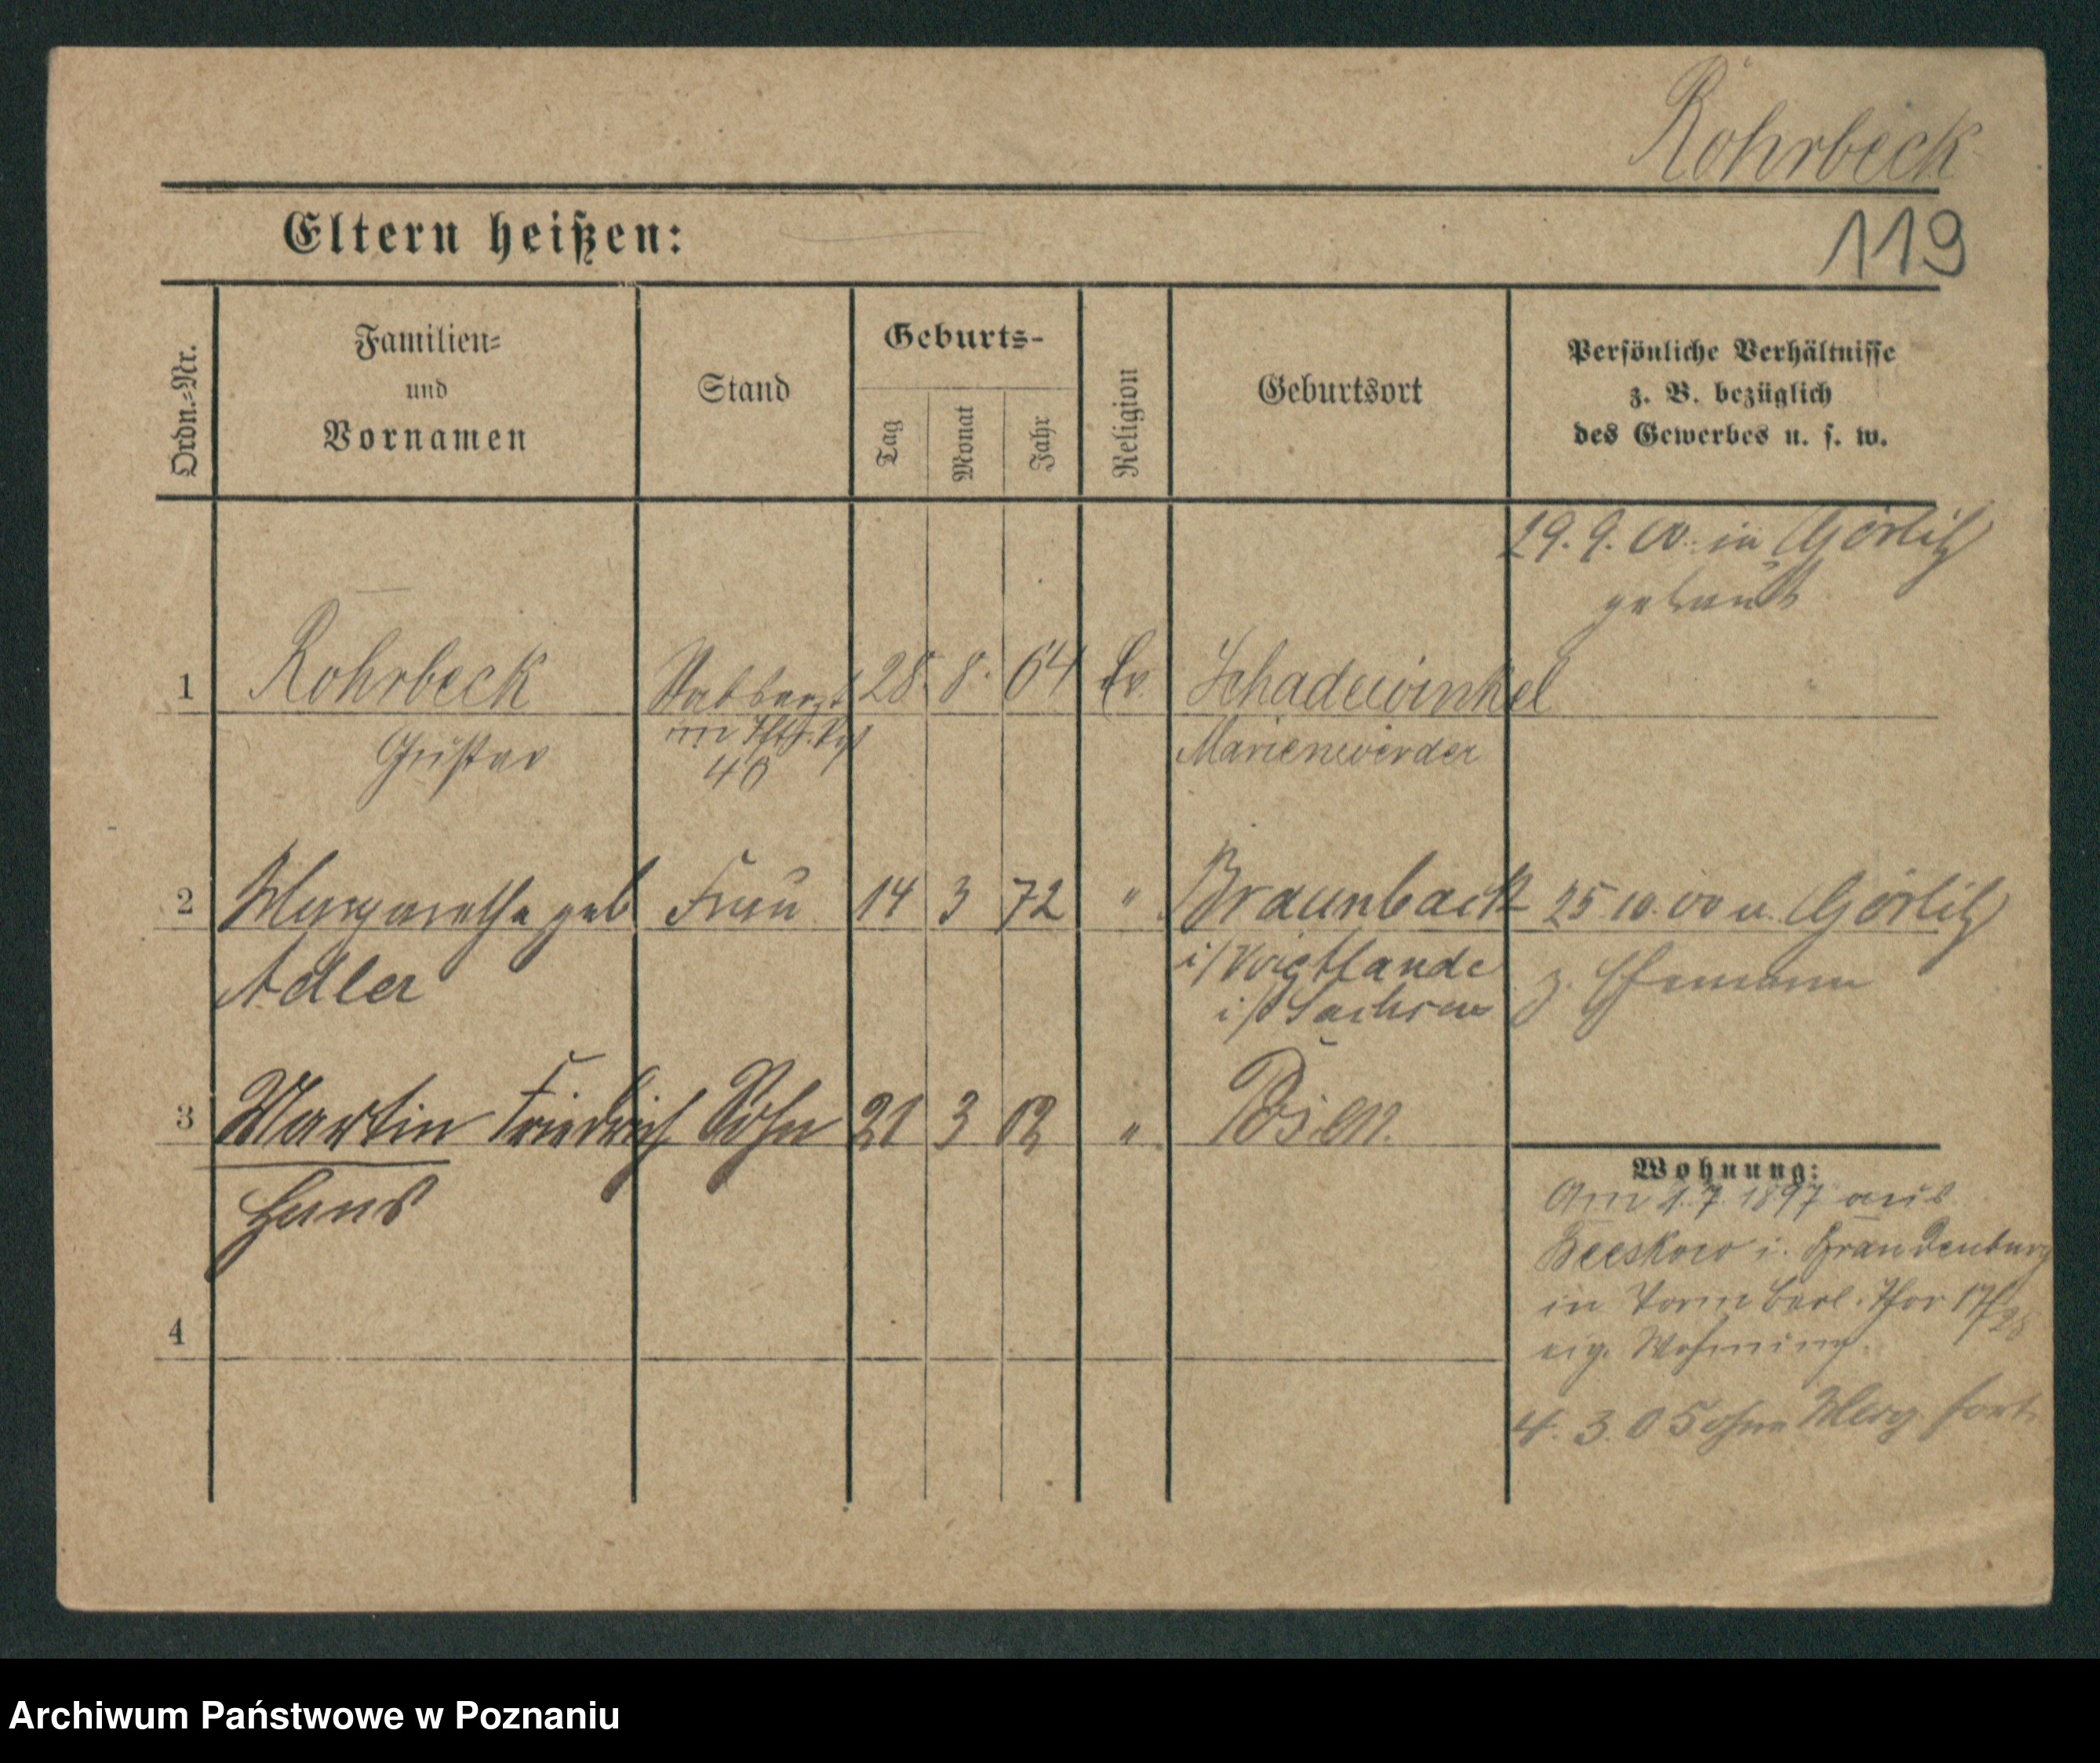 Rohrbeck
Eltern heißen:
119
Ordn.-Nr.
Familien-
und
Vornamen
Stand
Geburts-
Tag
Monat
Jahr
Religion
Geburtsort
Persönliche Verhältnisse
z. B. bezüglich
des Gewerbes u. s. w.
29. 9. 00. in Görlitz
getraut
1 Rohrbeck Stabsarzt 28. 8. 64 Ev. Schadewinkel
Gustav im Marienwerder
2 Margarethe geb Frau 14 3 72 " Braunback 25 10. 00 u. Görlitz
Adler i/Voigtlande z. Ehemann
i/Sachsen
3 Martin Friedrich Sohn 21 3 02 " Posen.
Hans
Wohnung:
Am 1. 7. 1897 aus
Beeskow i. Brandenburg
in Berl. Thor 17/28
eig. Wohnung.
4
4. 3. 05 ohne fort
Archiwum Państwowe w Poznaniu